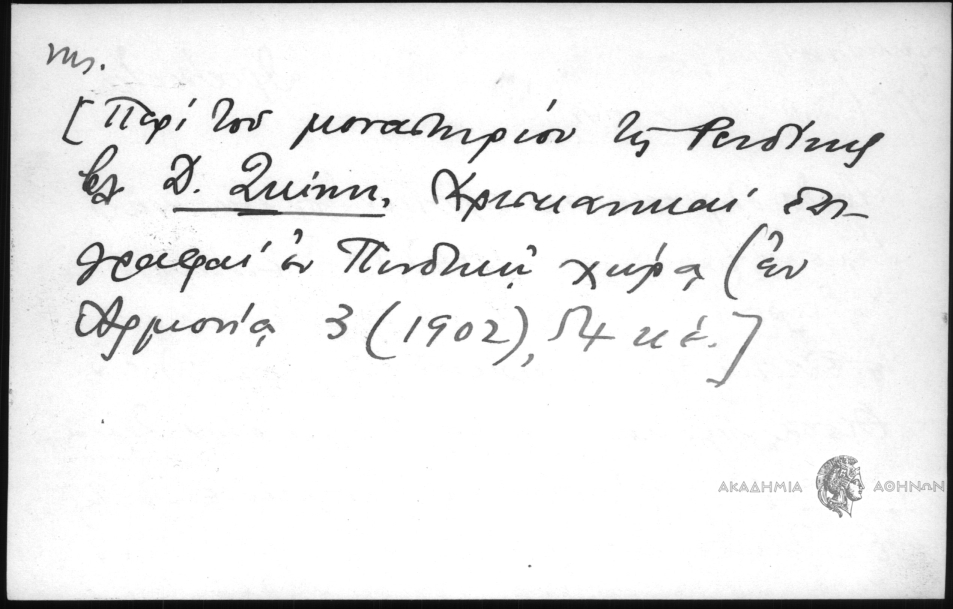 [Περί του μοναστηρίου της Ρενδίνης
βλ Δ. Σκίππη, Χριστιανικαί επι-
γραφαί εν Πινδική χώρᾳ (ἐν
Αρμονίᾳ 3 (1902), 54 κέ.]
ΑΚΑΔΗΜΙΑ ΑΘΗΝΩΝ